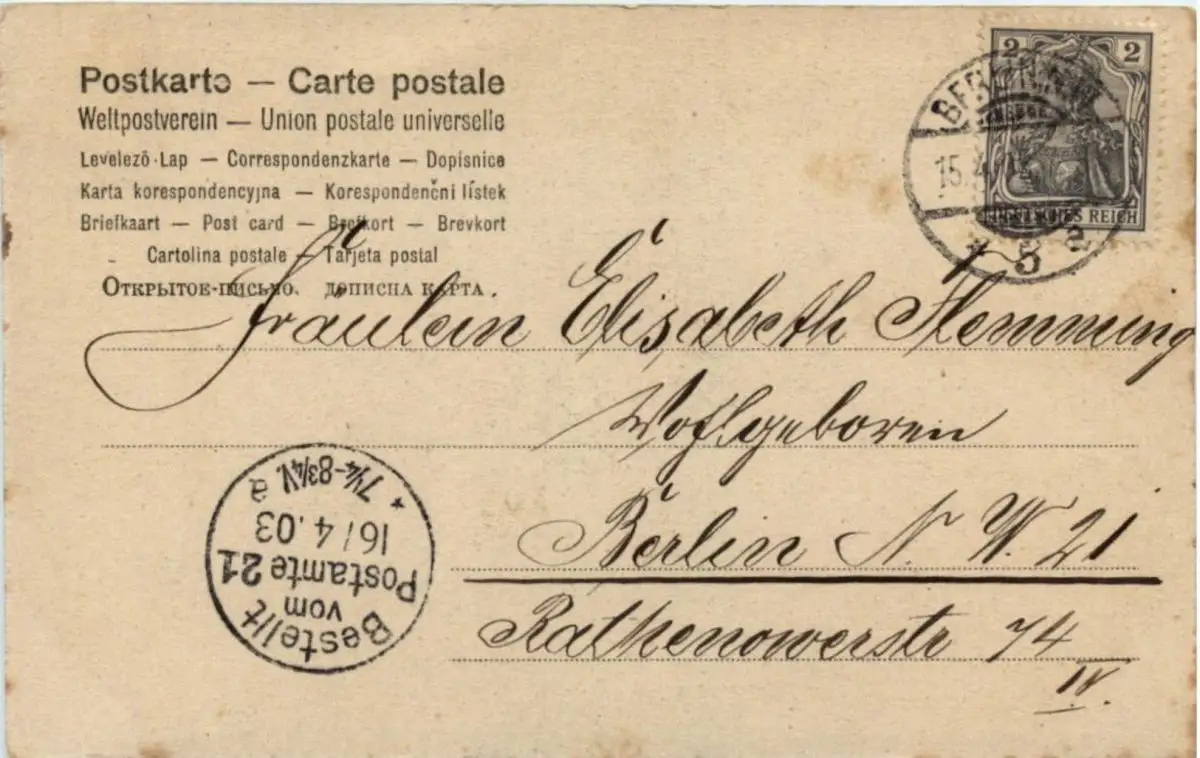 Postkarte — Carte postale
Weltpostverein — Union postale universelle
Levelező-Lap — Correspondenzkarte — Dopisnice
Karta korespondencyjna — Korespondenční lístek
Briefkaart — Post card — Brefkort — Brevkort
Cartolina postale — Tarjeta postal
Открытое-письмо. дописна карта.
2 2
DEUTSCHES REICH
BERLIN, N.W.
15.4.
* 5 a
Fräulein Elisabeth Flemming
Wohlgeboren
Berlin N. W. 21
Rathenowerstr 74
IV.
Bestellt
vom
Postamte 21
16/4.03
* 7¼-8¾V. a